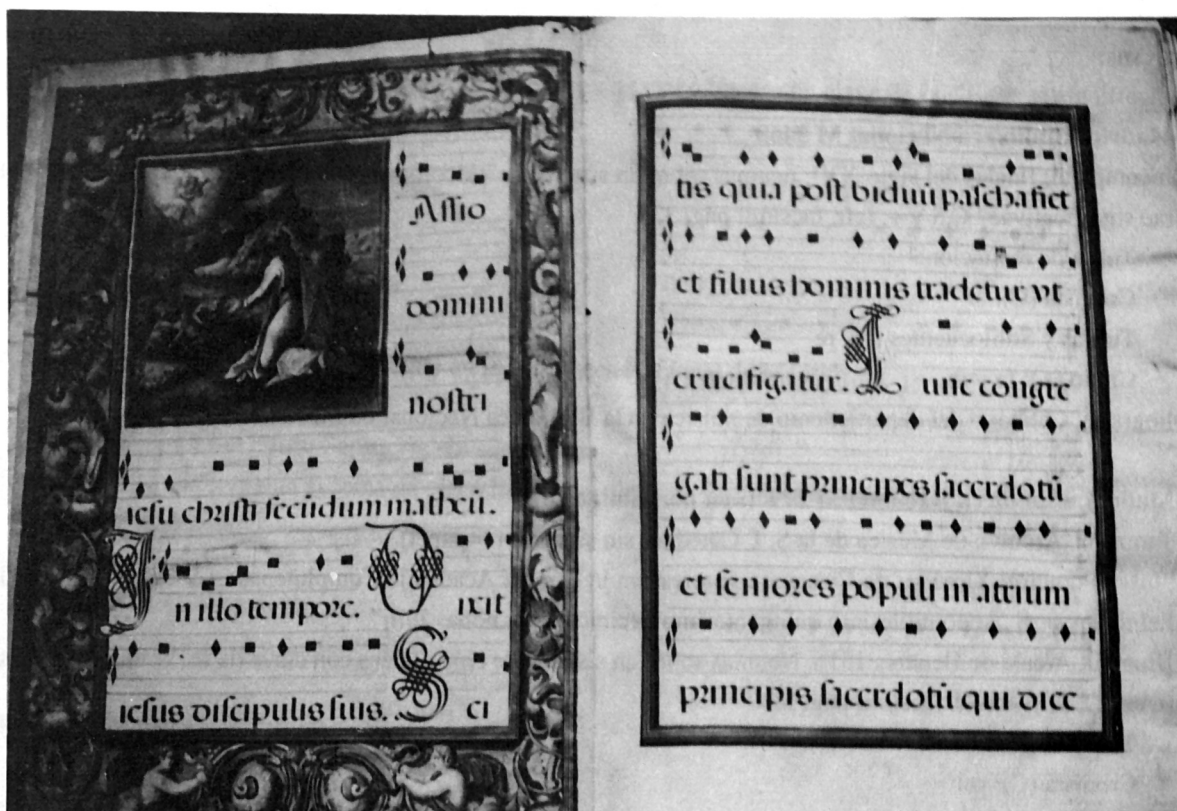 Assio
domini
nostri
iesu christi secūdum matheū.
In illo tempore. Dixit
iesus discipulis suis. Sci
tis quia post biduū pascha fiet
et filius hominis tradetur vt
crucifigatur. Tunc congre
gati sunt principes sacerdotū
et seniores populi in atrium
principis sacerdotū qui dice